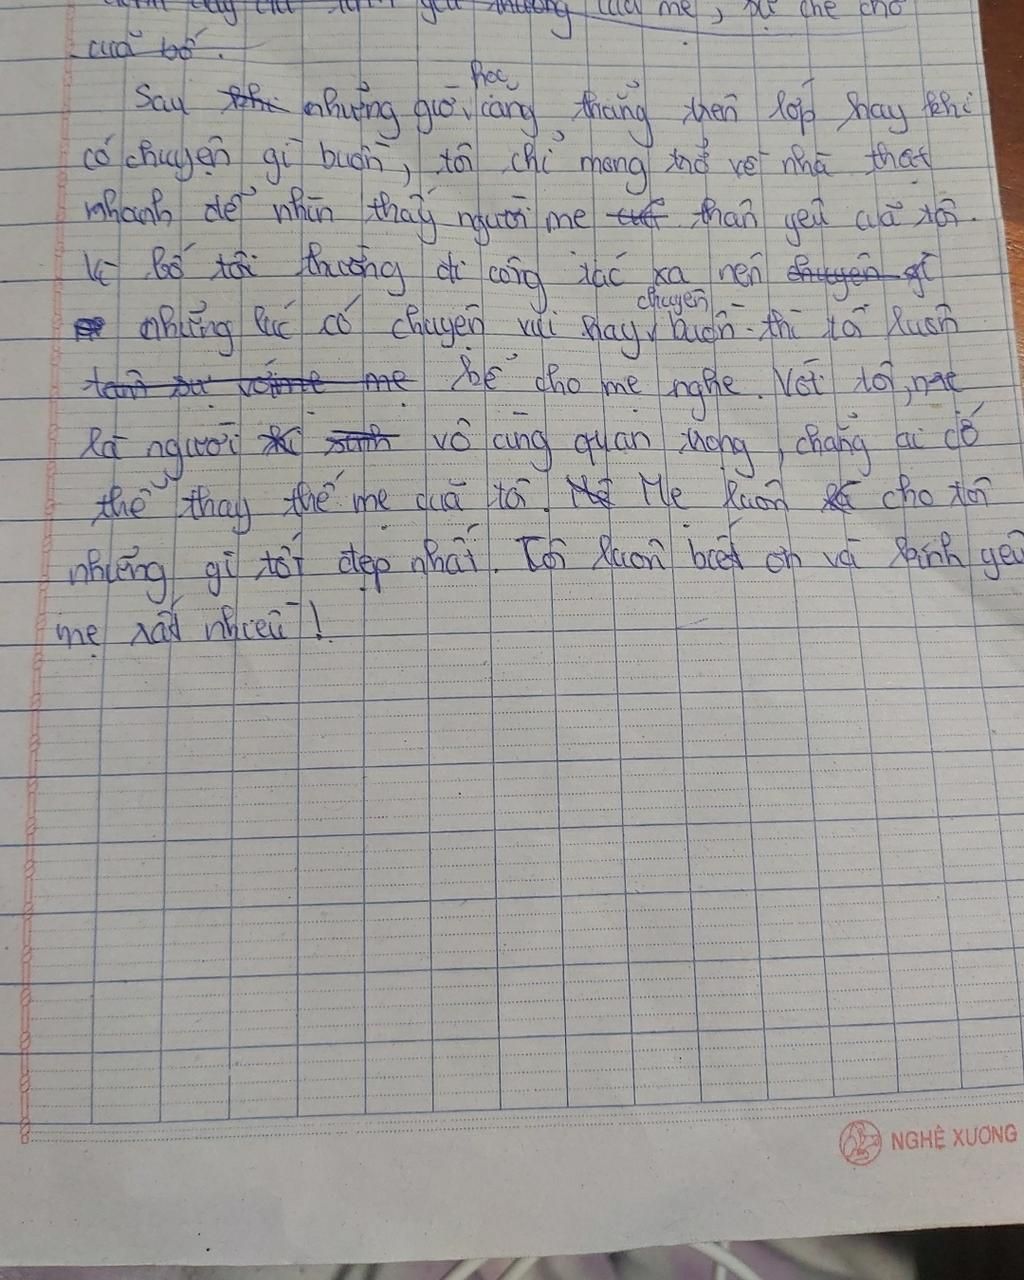 yêu thương của mẹ, sự che chở
của bố.
Sau khi những giờ học căng thẳng trên lớp hay khi
có chuyện gì buồn, tôi chỉ mong trở về nhà thật
nhanh để nhìn thấy người mẹ thân yêu của tôi.
Vì bố tôi thường đi công tác xa nên chuyện gì
những lúc có chuyện vui hay chuyện buồn thì tôi luôn
tâm sự với mẹ kể cho mẹ nghe. Với tôi, mẹ
là người vô cùng quan trọng, chẳng ai có
thể thay thế mẹ của tôi. Mẹ Mẹ luôn cho tôi
những gì tốt đẹp nhất. Tôi luôn biết ơn và kính yêu
mẹ rất nhiều!
NGHÊ XUONG